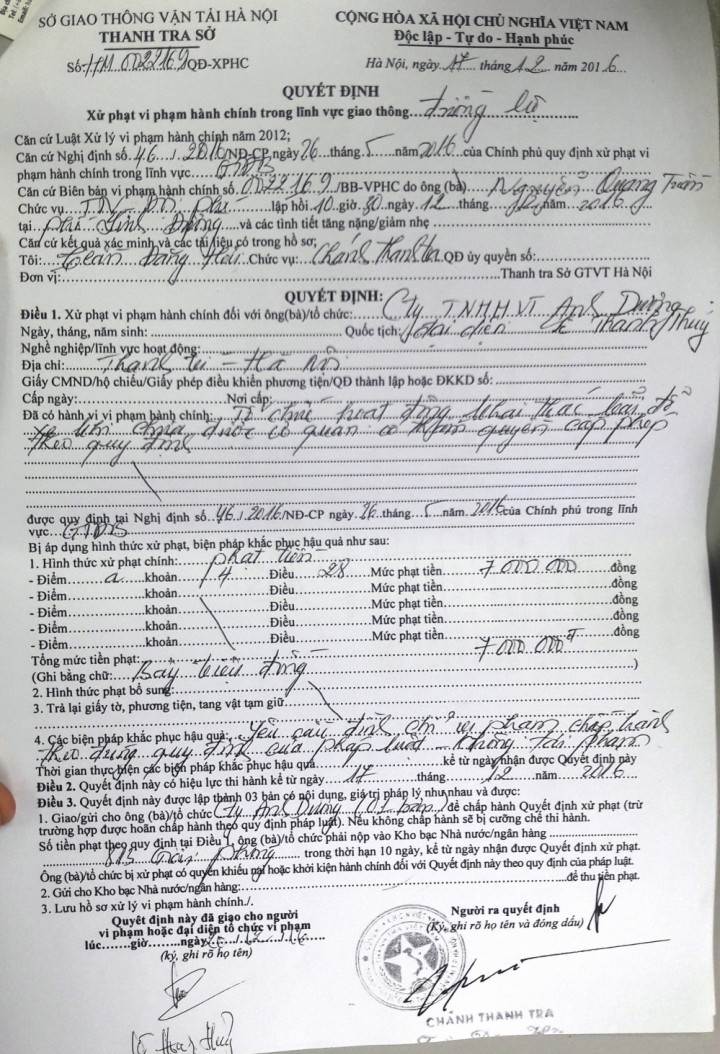 SỞ GIAO THÔNG VẬN TẢI HÀ NỘI
THANH TRA SỞ
Số: 0022169/QĐ-XPHC
CỘNG HÒA XÃ HỘI CHỦ NGHĨA VIỆT NAM
Độc lập - Tự do - Hạnh phúc
Hà Nội, ngày 17 tháng 12 năm 2016
QUYẾT ĐỊNH
Xử phạt vi phạm hành chính trong lĩnh vực giao thông đường bộ
Căn cứ Luật Xử lý vi phạm hành chính năm 2012;
Căn cứ Nghị định số 46/2016/NĐ-CP ngày 26 tháng 5 năm 2016 của Chính phủ quy định xử phạt vi
phạm hành chính trong lĩnh vực GTĐB
Căn cứ Biên bản vi phạm hành chính số 0022169/BB-VPHC do ông (bà) Nguyễn Quang
Chức vụ lập hồi 10 giờ 30 ngày 12 tháng năm 2016
tại và các tình tiết tăng nặng/giảm nhẹ
Căn cứ kết quả xác minh và các tài liệu có trong hồ sơ;
Tôi: Trần Đăng Hải Chức vụ: Chánh Thanh tra QĐ ủy quyền số:
Đơn vị: Thanh tra Sở GTVT Hà Nội
QUYẾT ĐỊNH:
Điều 1. Xử phạt vi phạm hành chính đối với ông(bà)/tổ chức: Cty TNHH VT Ánh Dương
Ngày, tháng, năm sinh: Quốc tịch: đại diện Thanh Thủy
Nghề nghiệp/lĩnh vực hoạt động:
Địa chỉ: - Hà Nội
Giấy CMND/hộ chiếu/Giấy phép điều khiển phương tiện/QĐ thành lập hoặc ĐKKD số:
Cấp ngày: Nơi cấp:
Đã có hành vi vi phạm hành chính: Tổ chức hoạt động khai thác bãi đỗ
xe khi chưa được cơ quan có thẩm quyền cấp phép
theo quy định
được quy định tại Nghị định số 46/2016/NĐ-CP ngày 26 tháng 5 năm 2016 của Chính phủ trong lĩnh
vực GTĐB
Bị áp dụng hình thức xử phạt, biện pháp khắc phục hậu quả như sau:
1. Hình thức xử phạt chính: phạt tiền
- Điểm a khoản 4 Điều 28 Mức phạt tiền 7000.000 đồng
- Điểm khoản Điều Mức phạt tiền đồng
- Điểm khoản Điều Mức phạt tiền đồng
- Điểm khoản Điều Mức phạt tiền đồng
- Điểm khoản Điều Mức phạt tiền đồng
Tổng mức tiền phạt: 7000.000đ
(Ghi bằng chữ: Bảy triệu đồng)
2. Hình thức phạt bổ sung:
3. Trả lại giấy tờ, phương tiện, tang vật tạm giữ
4. Các biện pháp khắc phục hậu quả: Yêu cầu đình chỉ vi phạm chấp hành
theo đúng quy định của pháp luật - Không tái phạm
Thời gian thực hiện các biện pháp khắc phục hậu quả kể từ ngày nhận được Quyết định này
Điều 2. Quyết định này có hiệu lực thi hành kể từ ngày 17 tháng 12 năm 2016
Điều 3. Quyết định này được lập thành 03 bản có nội dung, giá trị pháp lý như nhau và được:
1. Giao/gửi cho ông (bà)/tổ chức Cty Ánh Dương (01 bản) để chấp hành Quyết định xử phạt (trừ
trường hợp được hoãn chấp hành theo quy định pháp luật). Nếu không chấp hành sẽ bị cưỡng chế thi hành.
Số tiền phạt theo quy định tại Điều 1, ông (bà)/tổ chức phải nộp vào Kho bạc Nhà nước/ngân hàng
trong thời hạn 10 ngày, kể từ ngày nhận được Quyết định xử phạt.
Ông (bà)/tổ chức bị xử phạt có quyền khiếu nại hoặc khởi kiện hành chính đối với Quyết định này theo quy định của pháp luật.
2. Gửi cho Kho bạc Nhà nước/ngân hàng: để thu tiền phạt.
3. Lưu hồ sơ xử lý vi phạm hành chính./.
Quyết định này đã giao cho người
vi phạm hoặc đại diện tổ chức vi phạm
lúc giờ ngày
(ký, ghi rõ họ tên)
Người ra quyết định
(Ký, ghi rõ họ tên và đóng dấu)
CHÁNH THANH TRA